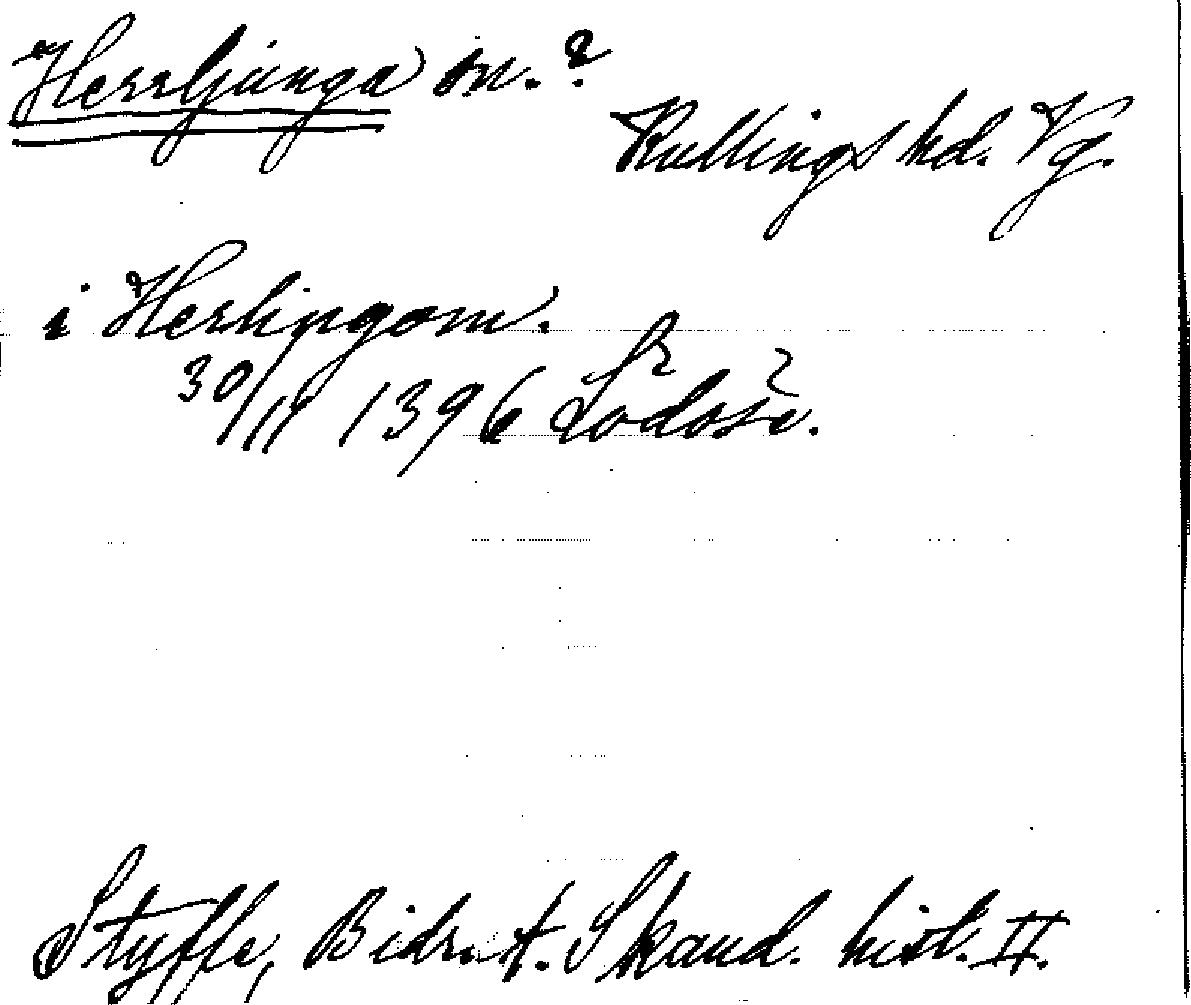 Herrljunga sn.?
Kullings hd. Vg.
i Herlingom.
30/11 1396 Lödose.
Styffe, Bidr. t. Skand. hist. II.